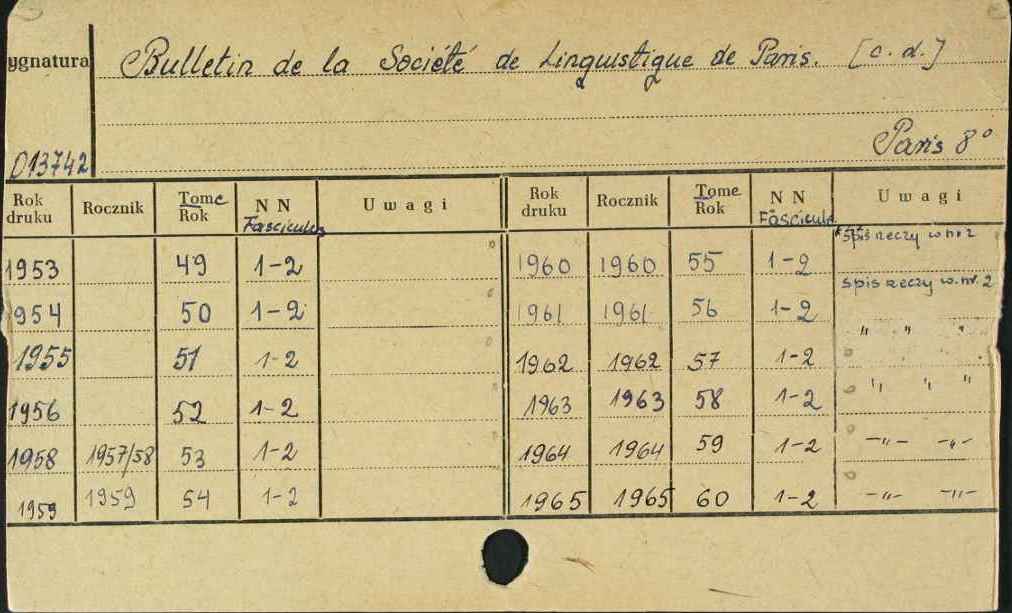 ygnatura Bulletin de la Société de Linguistique de Paris. [c.d.]
013742 Paris 8°
Rok druku Rocznik Tome Rok NN Fascicules Uwagi Rok druku Rocznik Tome Rok NN Fascicule Uwagi
1953 49 1-2 1960 1960 55 1-2 spis rzeczy w nr 2
1954 50 1-2 1961 1961 56 1-2 spis rzeczy w. nr. 2
1955 51 1-2 1962 1962 57 1-2 " " "
1956 52 1-2 1963 1963 58 1-2 " " "
1958 1957/58 53 1-2 1964 1964 59 1-2 -"- -"-
1959 1959 54 1-2 1965 1965 60 1-2 -"- -"-